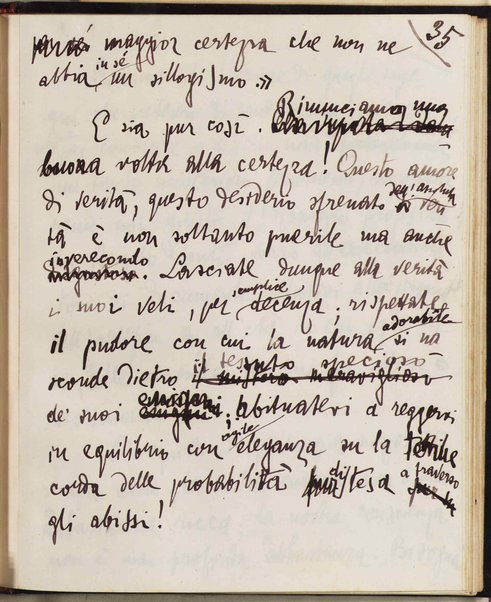 35
maggior certezza che non ne
abbia in sé un sillogismo.»
E sia pur così. Rinunciamo una
buona volta alla certezza! Questo amore
di verità, questo desiderio sfrenato degli assoluti di veri
tà è non soltanto puerile ma anche
inverecondo. Lasciate dunque alla verità
i suoi veli, per semplice decenza: rispettate
il pudore con cui la natura adorabile si na
sconde dietro il tessuto specioso il mistero meraviglioso
de' suoi enigmi: abituatevi a reggervi
in equilibrio con vigile eleganza su la sottile
corda delle probabilità distesa a traverso
gli abissi!